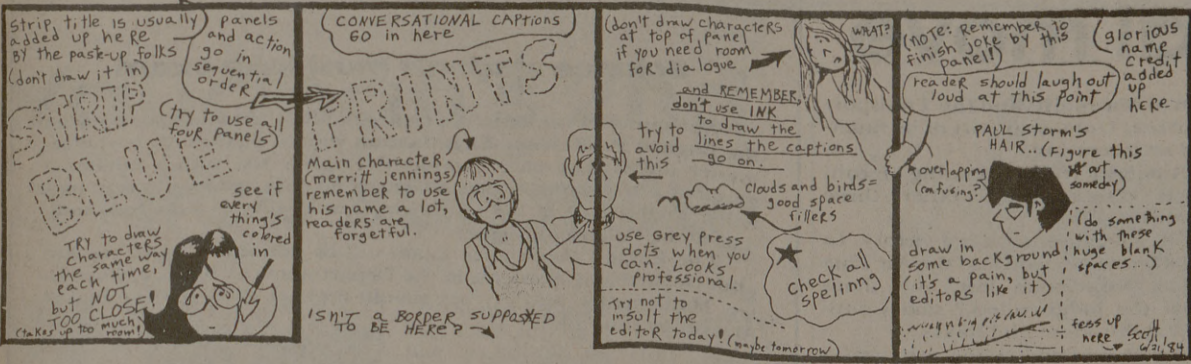 strip title is usually
added up here
By the paste-up folks
(don't draw it in)
panels
and action
go in
sequential
order
STRIP
(try to use all
four panels)
BLUE
see if
every
thing's
colored
in
TRY to draw
CHARACTERS
the same way
each time,
but NOT
TOO CLOSE!
(takes up too much
room!)
CONVERSATIONAL CAPTIONS
GO in here
PRINTS
Main character
(merritt jennings)
remember to use
his name a lot,
readers are
forgetful.
ISN'T a BORDER SUPPOSED
TO BE HERE?
(don't draw characters
at top of panel
if you need room
for dialogue
WHAT?
and REMEMBER,
don't use INK
to draw the
lines the captions
go on.
try to
avoid
this
clouds and birds=
good space
fillers
use Grey press
dots when you
can. Looks
professional.
check all
spelinng
Try not to
insult the
editor today! (maybe tomorrow)
(NOTE: Remember to
finish joke by this
panel!)
reader should laugh out
loud at this point
glorious
name
credit
added
up
here
PAUL Storm's
HAIR..(Figure this
out
someday)
overlapping
(confusing?)
draw in
some background
(it's a pain, but
editors like it)
(do something
with these
huge blank
spaces...)
fess up
here
Scott
6/21/84